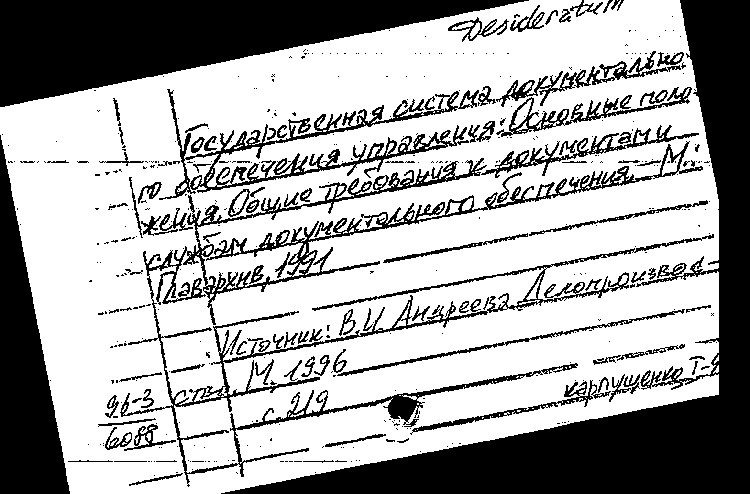 Desideratum
Государственная система документально-
го обеспечения управления: Основные поло-
жения. Общие требования к документам и
службам документального обеспечения. – М.:
Главархив, 1991
Источник: В.И. Андреева Делопроизвод-
ство. М. 1996
с. 219
96-3
6088
Карпущенко Т-9